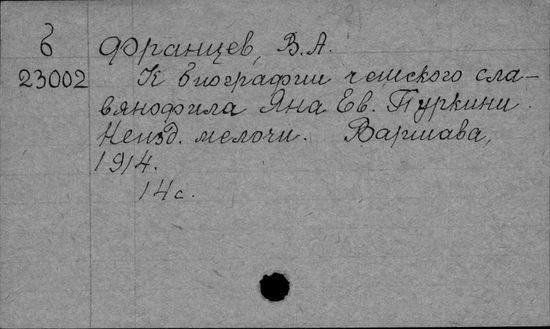 б Францев, В.А.
23002 К биографии чешского сла-
вянофила Яна Ев. Пуркини.
Неизд. мелочи. Варшава,
1914.
14 с.